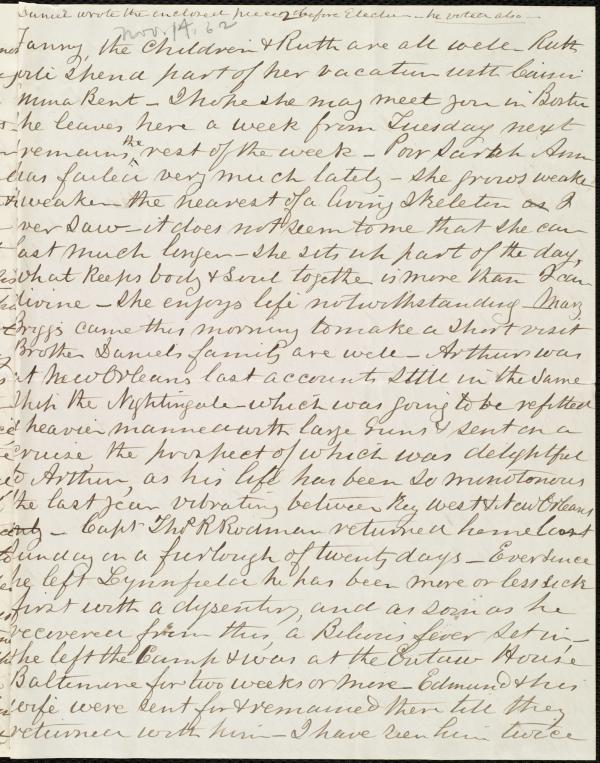 Daniel wrote the enclosed piece before Election - he voted also -
Nov. 14. 62
Fanny, the children & Ruth are all well - Ruth
will spend part of her vacation with
Emma Kent - I hope she may meet you in Boston
she leaves here a week from Tuesday next
& remains the rest of the week - Poor Sarah Ann
has failed very much lately - she grows weaker
& weaker the nearest of a living skeleton as I
ever saw - it does not seem to me that she can
last much longer - she sits up part of the day,
what keeps body & soul together is more than I can
divine - she enjoys life notwithstanding - Mary
Briggs came this morning to make a short visit
Brother Daniels family are well - Arthur was
at New Orleans last accounts still in the same
Ship the Nightingale - which was going to be refitted
& heavier manned with large guns & sent on a
cruise the prospect of which was delightful
to Arthur, as his life has been so monotonous
the last year vibrating between Key West & New Orleans
only - Capt Thos R Rodman returned home last
Sunday on a furlough of twenty days - Ever since
he left Lynnfield he has been more or less sick
first with a dysentery, and as soon as he
recovered from this, a Bilious fever set in,
he left the Camp & was at the Eutaw House
Baltimore for two weeks or more - Edmund & his
wife were sent for & remained there till they
returned with him - I have seen him twice